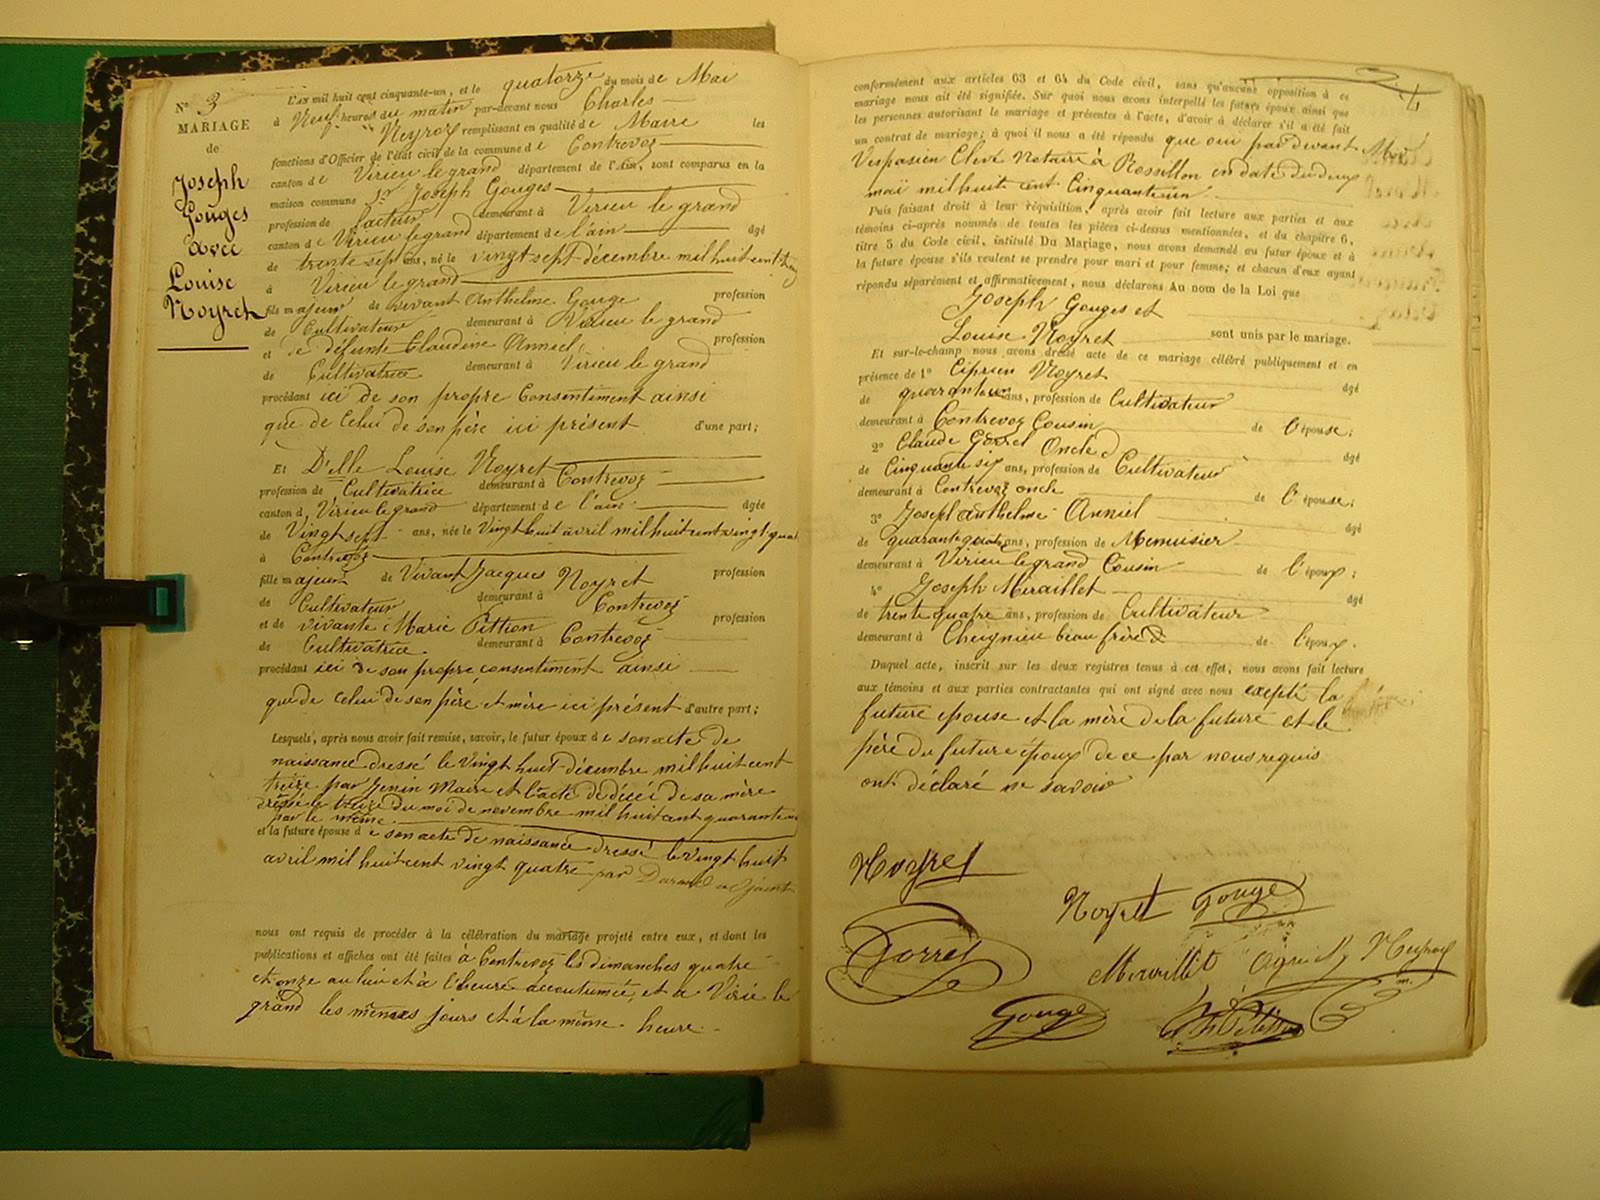 N° 3
MARIAGE
de
Joseph
Gouges
avec
Louise
Noyret
L'AN mil huit cent cinquante-un, et le quatorze du mois de Mai
à Neuf heures au matin par-devant nous Charles
Neyroz remplissant en qualité de Maire les
fonctions d'Officier de l'état civil de la commune de Contrevoz
canton de Virieu le grand département de l'Ain, sont comparus en la
maison commune Sr Joseph Gouges
profession de facteur demeurant à Virieu le grand
canton de Virieu le grand département de l'ain âgé
de trente sept ans, né le vingt sept décembre mil huit cent
à Virieu le grand
fils majeur de vivant Anthelme Gouge profession
de Cultivateur demeurant à Virieu le grand
et de défunte Claudine Anniel profession
de Cultivatrice demeurant à Virieu le grand
procédant ici de son propre Consentiment ainsi
que de Celui de son père ici présent d'une part;
Et Delle Louise Noyret
profession de Cultivatrice demeurant à Contrevoz
canton d. Virieu le grand département de l'ain âgée
de Vingt sept ans, née le Vingt huit avril mil huit cent vingt quat
à Contrevoz
fille majeur de Vivant Jacques Noyret profession
de Cultivateur demeurant à Contrevoz
et de vivante Marie Pittion profession
de Cultivatrice demeurant à Contrevoz
procédant ici de son propre consentiment ainsi
que de celui de son père et mère ici présent d'autre part;
Lesquels, après nous avoir fait remise, savoir, le futur époux de son acte de
naissance dressé le vingt huit décembre mil huit cent
treize par Jenin Maire et l'acte de décéi de sa mère
dressé le treize du moi de novembre mil huit cent quarante
par le même.
et la future épouse de son acte de naissance dressé le vingt huit
avril mil huit cent vingt quatre par Durand adjoint
nous ont requis de procéder à la célébration du mariage projeté entre eux, et dont les
publications et affiches ont été faites à Contrevoz les dimanches quatre
et onze au lieu et à l'heure accoutumée, et a Virie le
grand les mêmes jours et à la même heure
conformément aux articles 63 et 64 du Code civil, sans qu'aucune opposition à ce
mariage nous ait été signifiée. Sur quoi nous avons interpellé les futurs époux ainsi que
les personnes autorisant le mariage et présentes à l'acte, d'avoir à déclarer s'il a été fait
un contrat de mariage; à quoi il nous a été répondu que oui par devant
Vespasien Clerc Notaire à Rossillon en date du deux
mai mil huit cent Cinquante un
Puis faisant droit à leur réquisition, après avoir fait lecture aux parties et aux
témoins ci-après nommés de toutes les pièces ci-dessus mentionnées, et du chapitre 6,
titre 5 du Code civil, intitulé Du Mariage, nous avons demandé au futur époux et à
la future épouse s'ils veulent se prendre pour mari et pour femme; et chacun d'eux ayant
répondu séparément et affirmativement, nous déclarons Au nom de la Loi que
Joseph Gouges et
Louise Noyret sont unis par le mariage.
Et sur-le-champ nous avons dressé acte de ce mariage célébré publiquement et en
présence de 1° Ciprien Noyret âgé
de quarante un ans, profession de Cultivateur
demeurant à Contrevoz Cousin de l'épouse;
2° Claude Gorret Oncle âgé
de Cinquante six ans, profession de Cultivateur
demeurant à Contrevoz oncle de l'épouse;
3° Joseph anthelme Anniel âgé
de quarante quatre ans, profession de Menuisier
demeurant à Virieu le grand Cousin de l'époux;
4° Joseph Miraillet âgé
de trente quatre ans, profession de Cultivateur
demeurant à Cheignieu beau frère de l'époux.
Duquel acte, inscrit sur les deux registres tenus à cet effet, nous avons fait lecture
aux témoins et aux parties contractantes qui ont signé avec nous exepté la
future epouse et la mère de la future et le
père du future époux de ce par nous requis
ont déclaré ne savoir
Noyret
Noyret Gouge
Gorret
Gouge